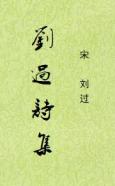 宋 刘过
劉過詩集